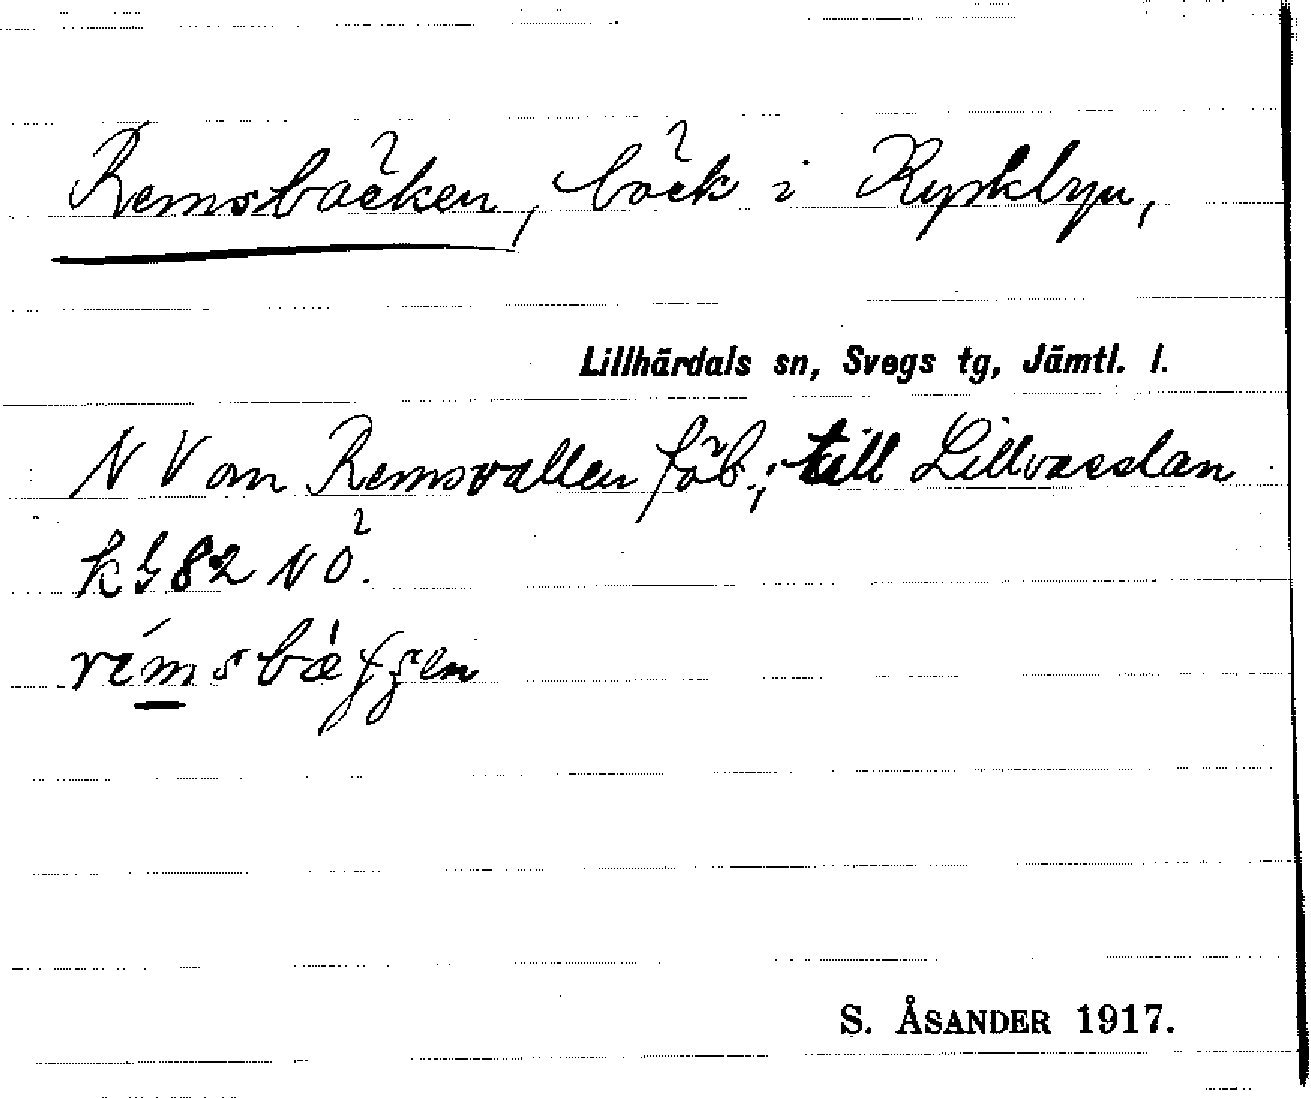 Remsbäcken, bäck i Kyrkbyn,
Lillhärdals sn, Svegs tg, Jämtl. l.
N V om Remsvallen fäb.; till Lillvasslan
kg 82 NÖ.
S. ÅSANDER 1917.